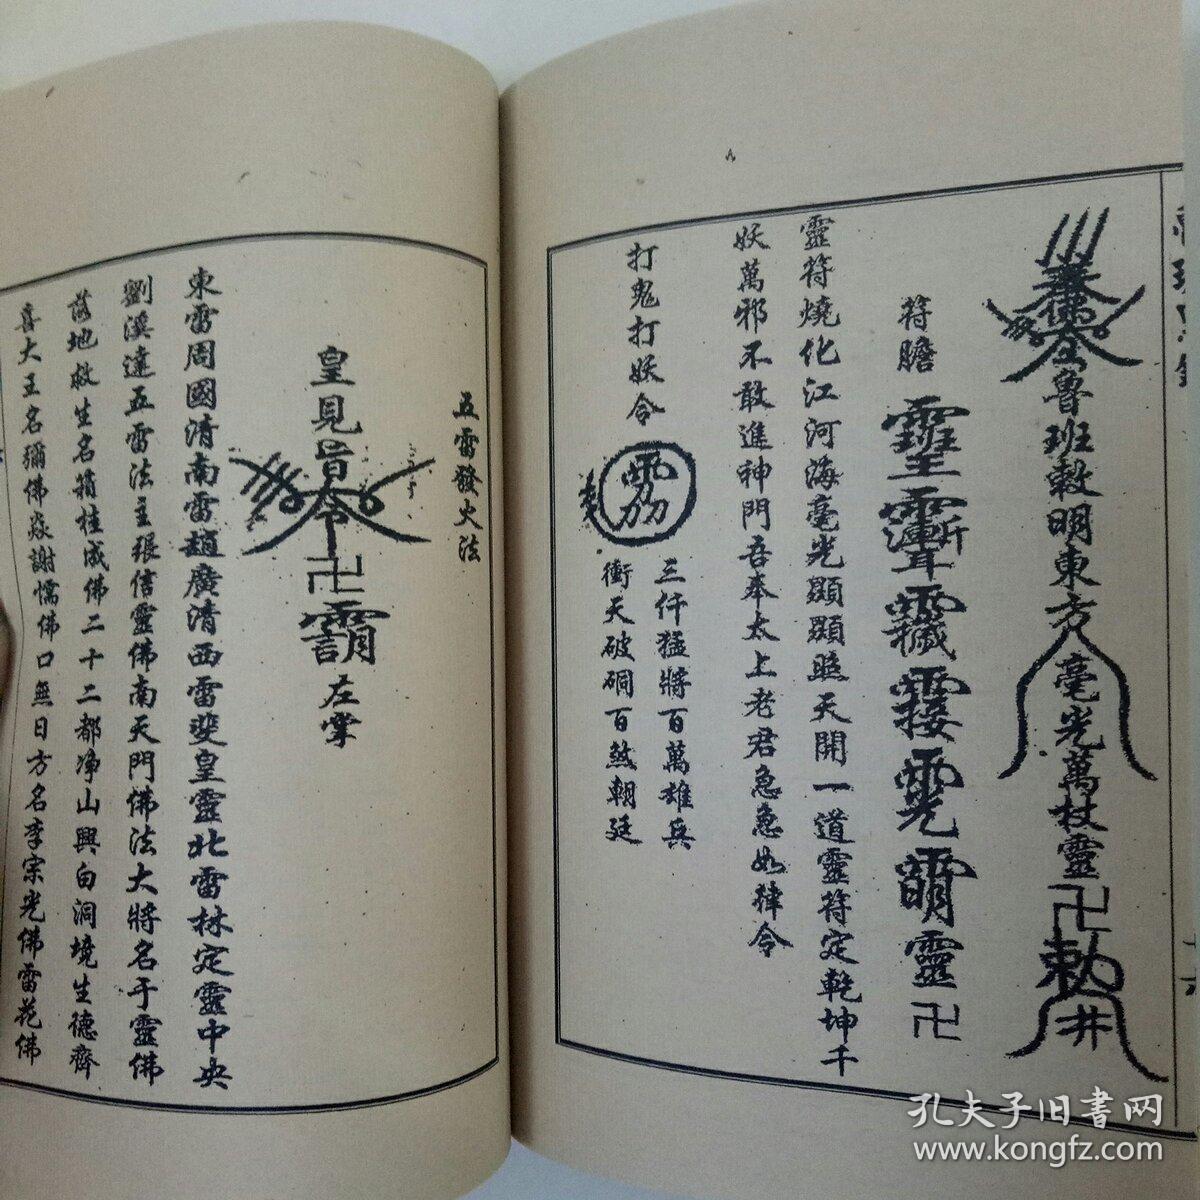 魯班敕明東方毫光萬杖靈卍敕井
符膽
靈卍
靈符燒化江河海毫光顯顯照天開一道靈符定乾坤千
妖萬邪不敢進神門吾奉太上老君急急如律令
打鬼打妖令
三仟猛將百萬雄兵
衝天破硐百煞朝廷
五雷發火法
皇見旨令卍左掌
東雷周國清南雷趙廣清西雷斐皇靈北雷林定靈中央
劉溪達五雷法主張信靈佛南天門佛法大將名于靈佛
落地救生名箱桂成佛二十二都净山興白洞境生德齊
喜大王名彌佛焱謝懦佛口無日方名李宗光佛雷花佛
孔夫子旧书网
www.kongfz.com